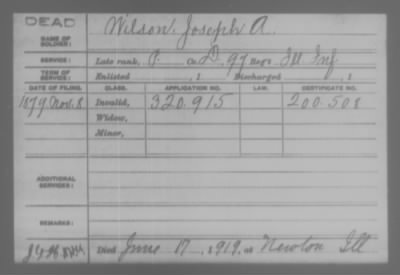 DEAD
NAME OF SOLDIER: Wilson, Joseph A.
SERVICE: Late rank, P. Co. D. 97 Reg't Ill Inf
TERM OF SERVICE: Enlisted , 1 Discharged , 1
DATE OF FILING. CLASS. APPLICATION NO. LAW. CERTIFICATE NO.
1879 Nov. 8 Invalid, 320.915 200.508
Widow,
Minor,
ADDITIONAL SERVICES:
REMARKS:
Died June 17, 1919, at Newton Ill